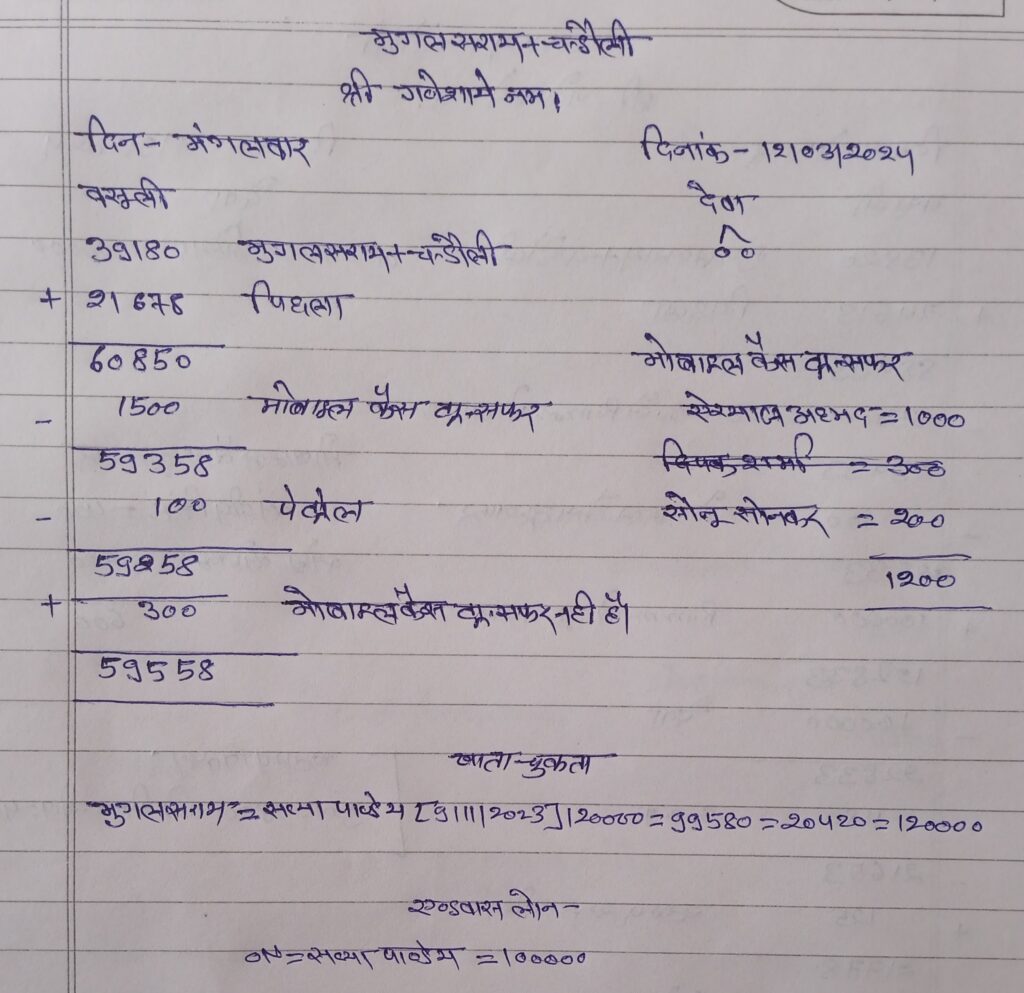 मुगलसराय+चन्डौली
श्री गणेशाये नम।
दिन- मंगलवार दिनांक- 12/03/2024
वसूली देना
39180 मुगलसराय+चन्डौली 00
+ 21678 पिछला
60850 मोबाइल कैस ट्रान्सफर
- 1500 मोबाइल कैस ट्रान्सफर अहमद = 1000
59358 दिपक शर्मा = 300
- 100 पेट्रोल सोनू सोनकर = 200
59258 1200
+ 300 मोबाइल कैस ट्रान्सफर नही है।
59558
खाता-चुकता
मुगलसराय = सध्या पाण्डेय [9/11/2023] 120000 = 99580 = 20420 = 120000
एण्डवास लोन-
ON = सध्या पाण्डेय = 100000